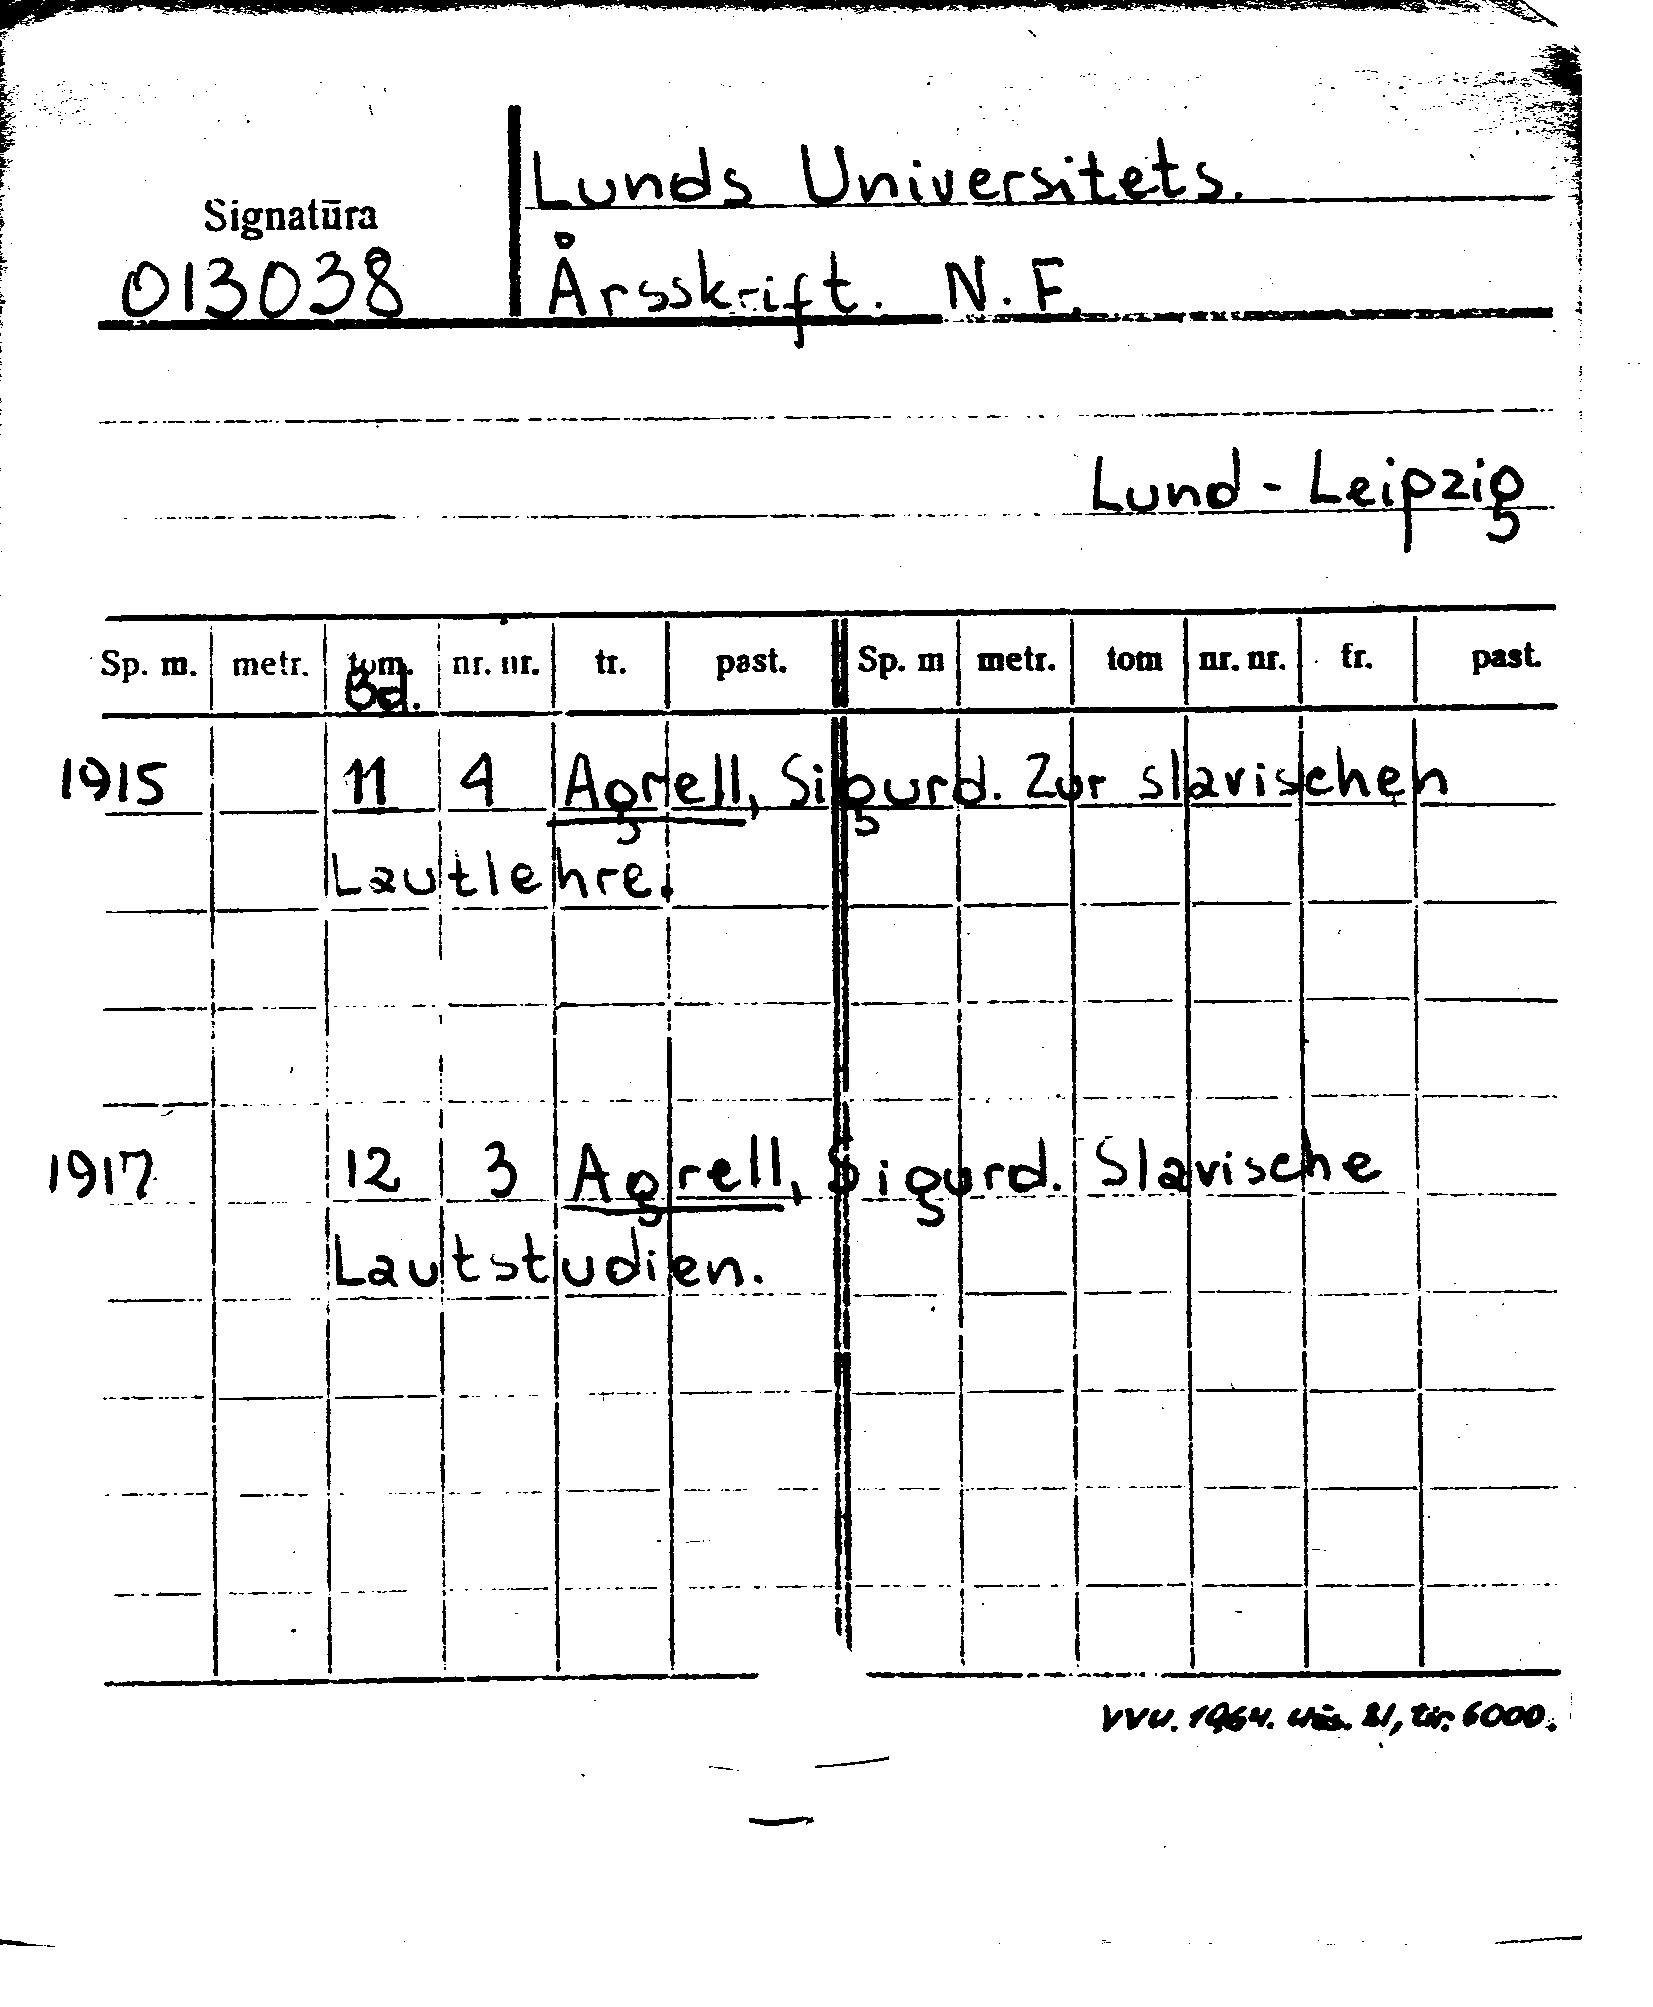 Lunds Universitets.
Signatūra
013038 Årsskrift. N. F.
Lund - Leipzig
Sp. m. metr. tom. nr. nr. tr. past. Sp. m metr. tom nr. nr. fr. past.
Bd.
1915 11 4 Agrell, Sigurd. Zur slavischen
Lautlehre.
1917 12 3 Agrell, Sigurd. Slavische
Lautstudien.
VVU. 1964. 21, tir. 6000.